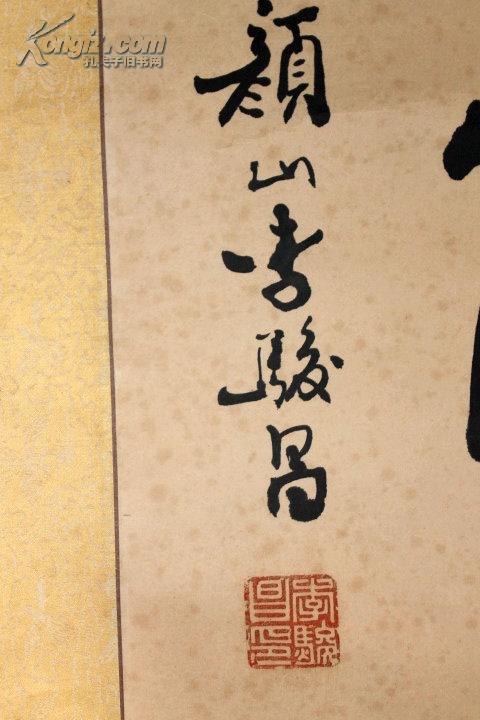 Kongfz.com
孔夫子旧书网
颜山李骏昌
李骏昌印